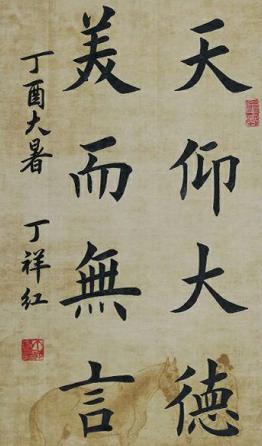 天仰大德
美而無言
丁酉大暑 丁祥红